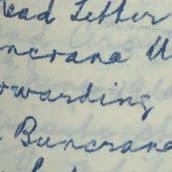 ead Letter
ncrana U
warding
Buncrana